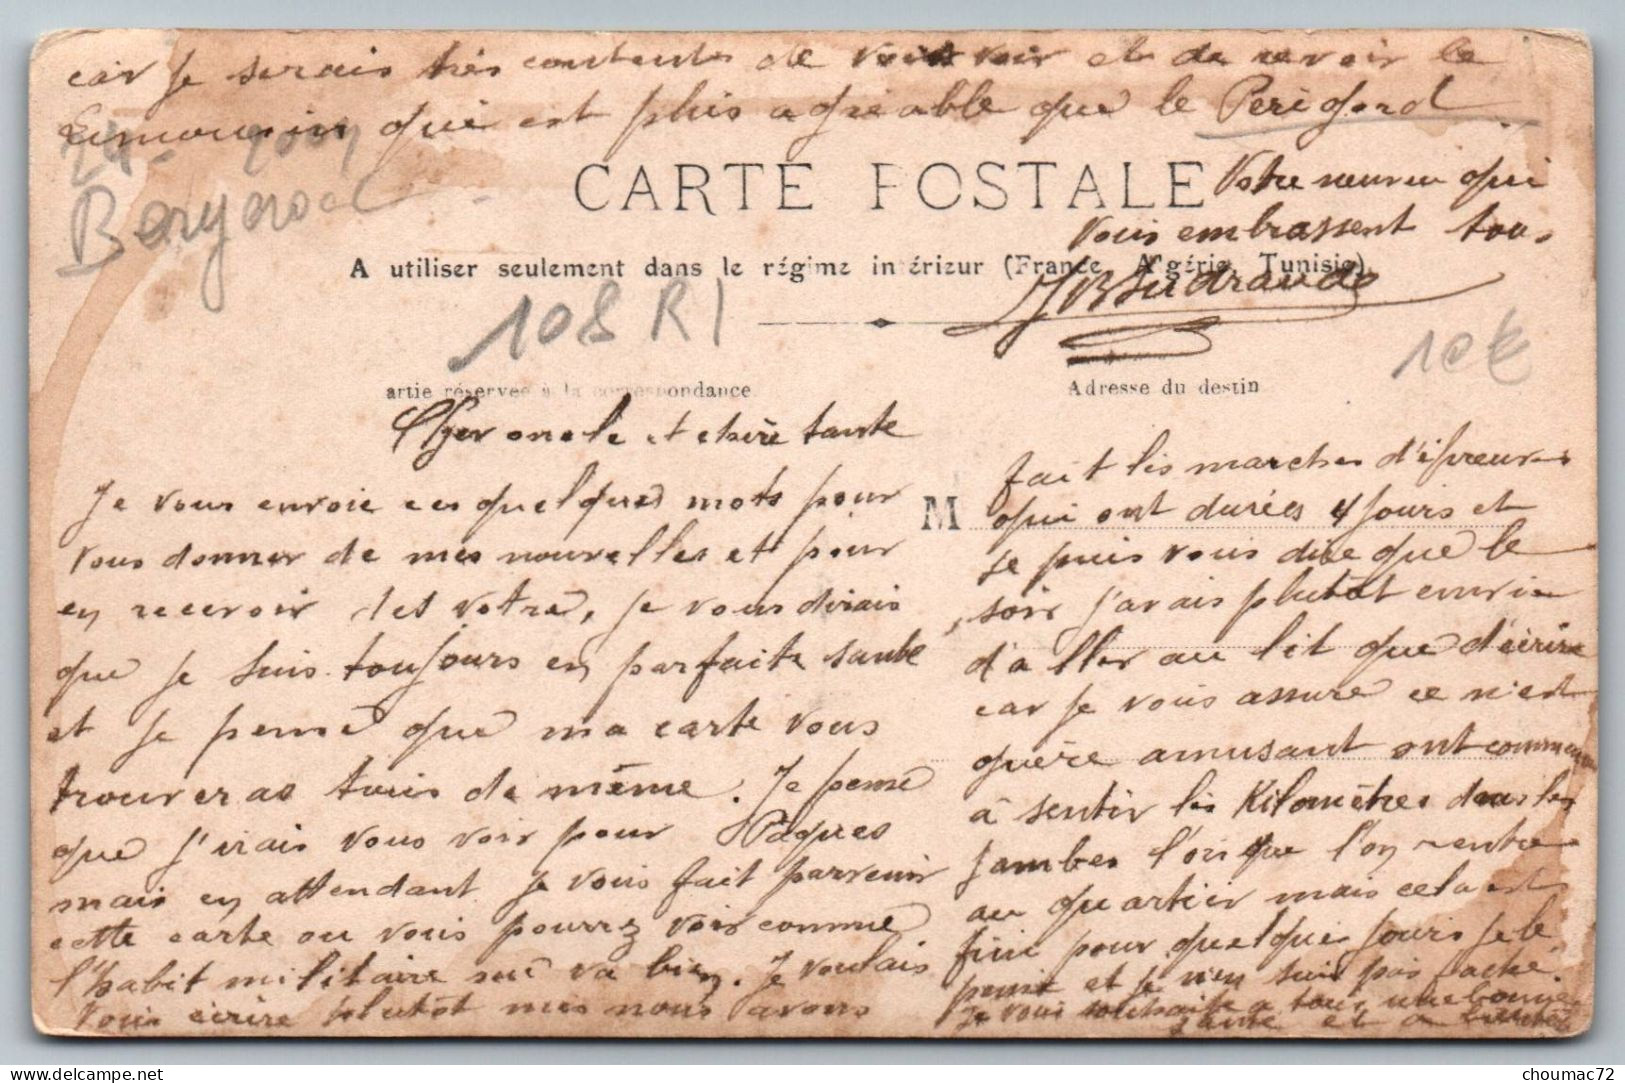 car je serais très contents de voir et de revoir le
Limousin qui est plus agréable que le Perigord.
24 -
Bergerac
CARTE POSTALE
Votre neuveu qui
vous embrassent tous
A utiliser seulement dans le régime intérieur (France, Algérie, Tunisie)
108 RI
10€
artie réservée à la correspondance
Adresse du destin
Cher oncle et chère tante
Je vous envoie ces quelques mots pour
vous donner de mes nouvelles et pour
en recevoir des votre, je vous dirais
que je suis toujours en parfaite sante
et je pense que ma carte vous
trouveras tous de même. Je pense
que j'irais vous voir pour Pâques
mais en attendant je vous fait parvenir
cette carte ou vous pourrez voir comme
l'habit militaire me va bien. Je voulais
vous écrire plutôt mes nous avons
M
fait les marches d'épreuves
qui ont durées 4 jours et
je puis vous dire que le
soir j'avais plutôt envie
d'aller au lit que d'écrire
car je vous assure ce n'est
guère amusant ont commence
à sentir les Kilomètres dans les
jambes lorsque l'on rentre
au quartier mais cela est
fini pour quelques jours je le
pense et je n'en suis pas faché.
Je vous souhaite a tous une bonne
sante et a
delcampe.net
choumac72